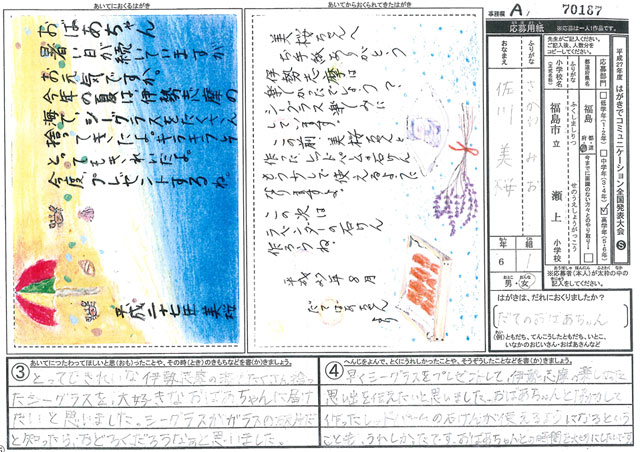 事務欄 A 70187
応募用紙
※応募は一人1作品です。
先生がご記入ください。
ご記入後、人数分を
コピーしてください。
平成27年度 はがきでコミュニケーション全国発表大会 S
応募部門
低学年(1・2年)
中学年(3・4年)
高学年(5・6年)
都道府県名
福島 都・道 府・県
ふりがな ふくしましりつ せのうえしょうがっこう
小学校名
福島市立 瀬上 小学校
ふりがな
おなまえ
佐川 美桜
年 組
6 1
男・女
※応募者(本人)が太枠の中の
記入をしてください。
はがきは、だれにおくりましたか?
だてのおばあちゃん
(例)ともだち、てんこうしたともだち、いとこ、
いなかのおじいさん・おばあさんなど
あいてにおくるはがき
おばあちゃん
暑い日が続いていますが
お元気ですか。
今年の夏は、伊勢志摩の
海で、シーグラスをたくさん
拾ってきたよ。キラキラして
とってもきれいだよ。
今度プレゼントするね。
平成二十七年 美桜
あいてからおくられてきたはがき
美桜ちゃんへ
お手紙ありがとう
伊勢志摩は
楽しかったでしょう?
シーグラス楽しみに
しています。
この前、美桜ちゃんと
作ったレッドパームの石けん
もうすぐで使えるように
なりますよ。
この次は
ラベンダーの石けん
作ろうね。
平成27年8月
だてばあちゃん
より
③ あいてにつたわってほしいと思(おも)ったことや、その時(とき)のきもちなどを書(か)きましょう。
とってもきれいな伊勢志摩の海でたくさん拾っ
たシーグラスを、大好きなおばあちゃんに届け
たいと思いました。シーグラスがガラスの
と知ったら、おどろくだろうなあと思いました。
④ へんじをよんで、とくにうれしかったことや、そうぞうしたことなどを書(か)きましょう。
早くシーグラスをプレゼントして、伊勢志摩の楽しかった
思い出を伝えたいと思いました。おばあちゃんと
作ったレッドパームの石けんが使えるようになるという
ことも、うれしかったです。おばあちゃんとの時間を大切にしたいです